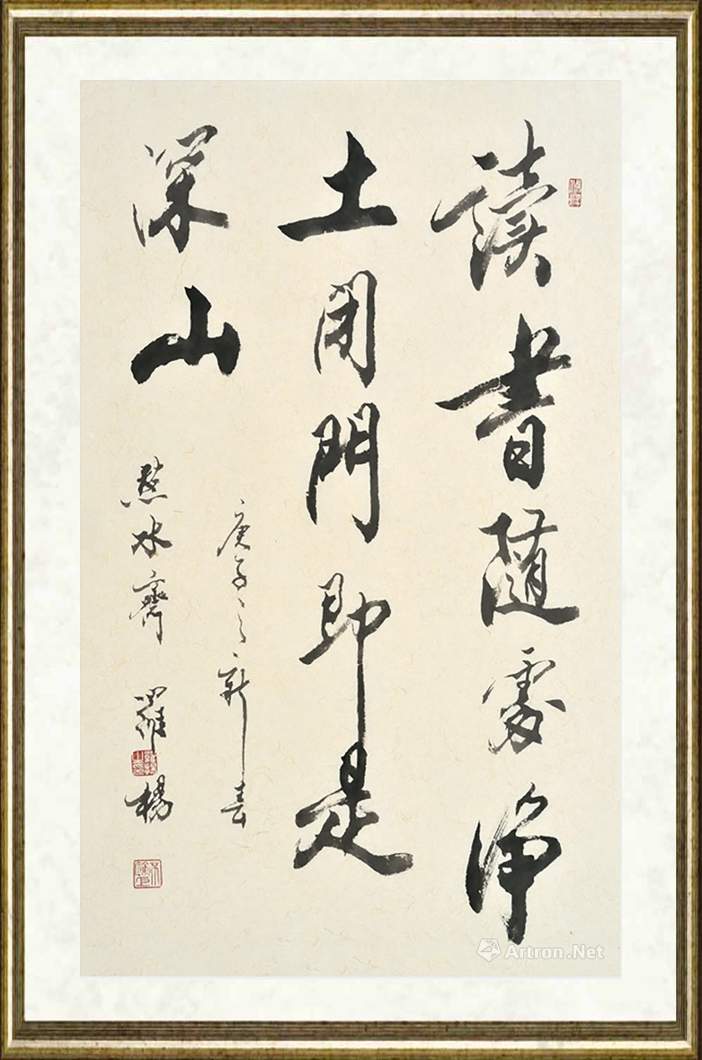 讀書隨處淨
土閉門即是
深山
庚子之新春
點水齋 羅楊
Artron.Net